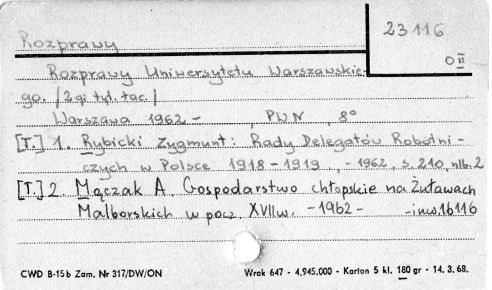 Rozprawy
23116
0III
Rozprawy Uniwersytetu Warszawskie-
go. /2gi tyt. łac./
Warszawa 1962 - , PWN, 8°
[T.] 1. Rybicki Zygmunt: Rady Delegatów Robotni-
czych w Polsce 1918-1919, -1962, s. 210, nlb. 2
[T.] 2. Mączak A. Gospodarstwo chłopskie na Żuławach
Malborskich w pocz. XVII w. -1962- -inw 16116
CWD B-15b Zam. Nr 317/DW/ON
Wrak 647 - 4.945.000 - Karton 5 kl. 180 gr - 14. 3. 68.